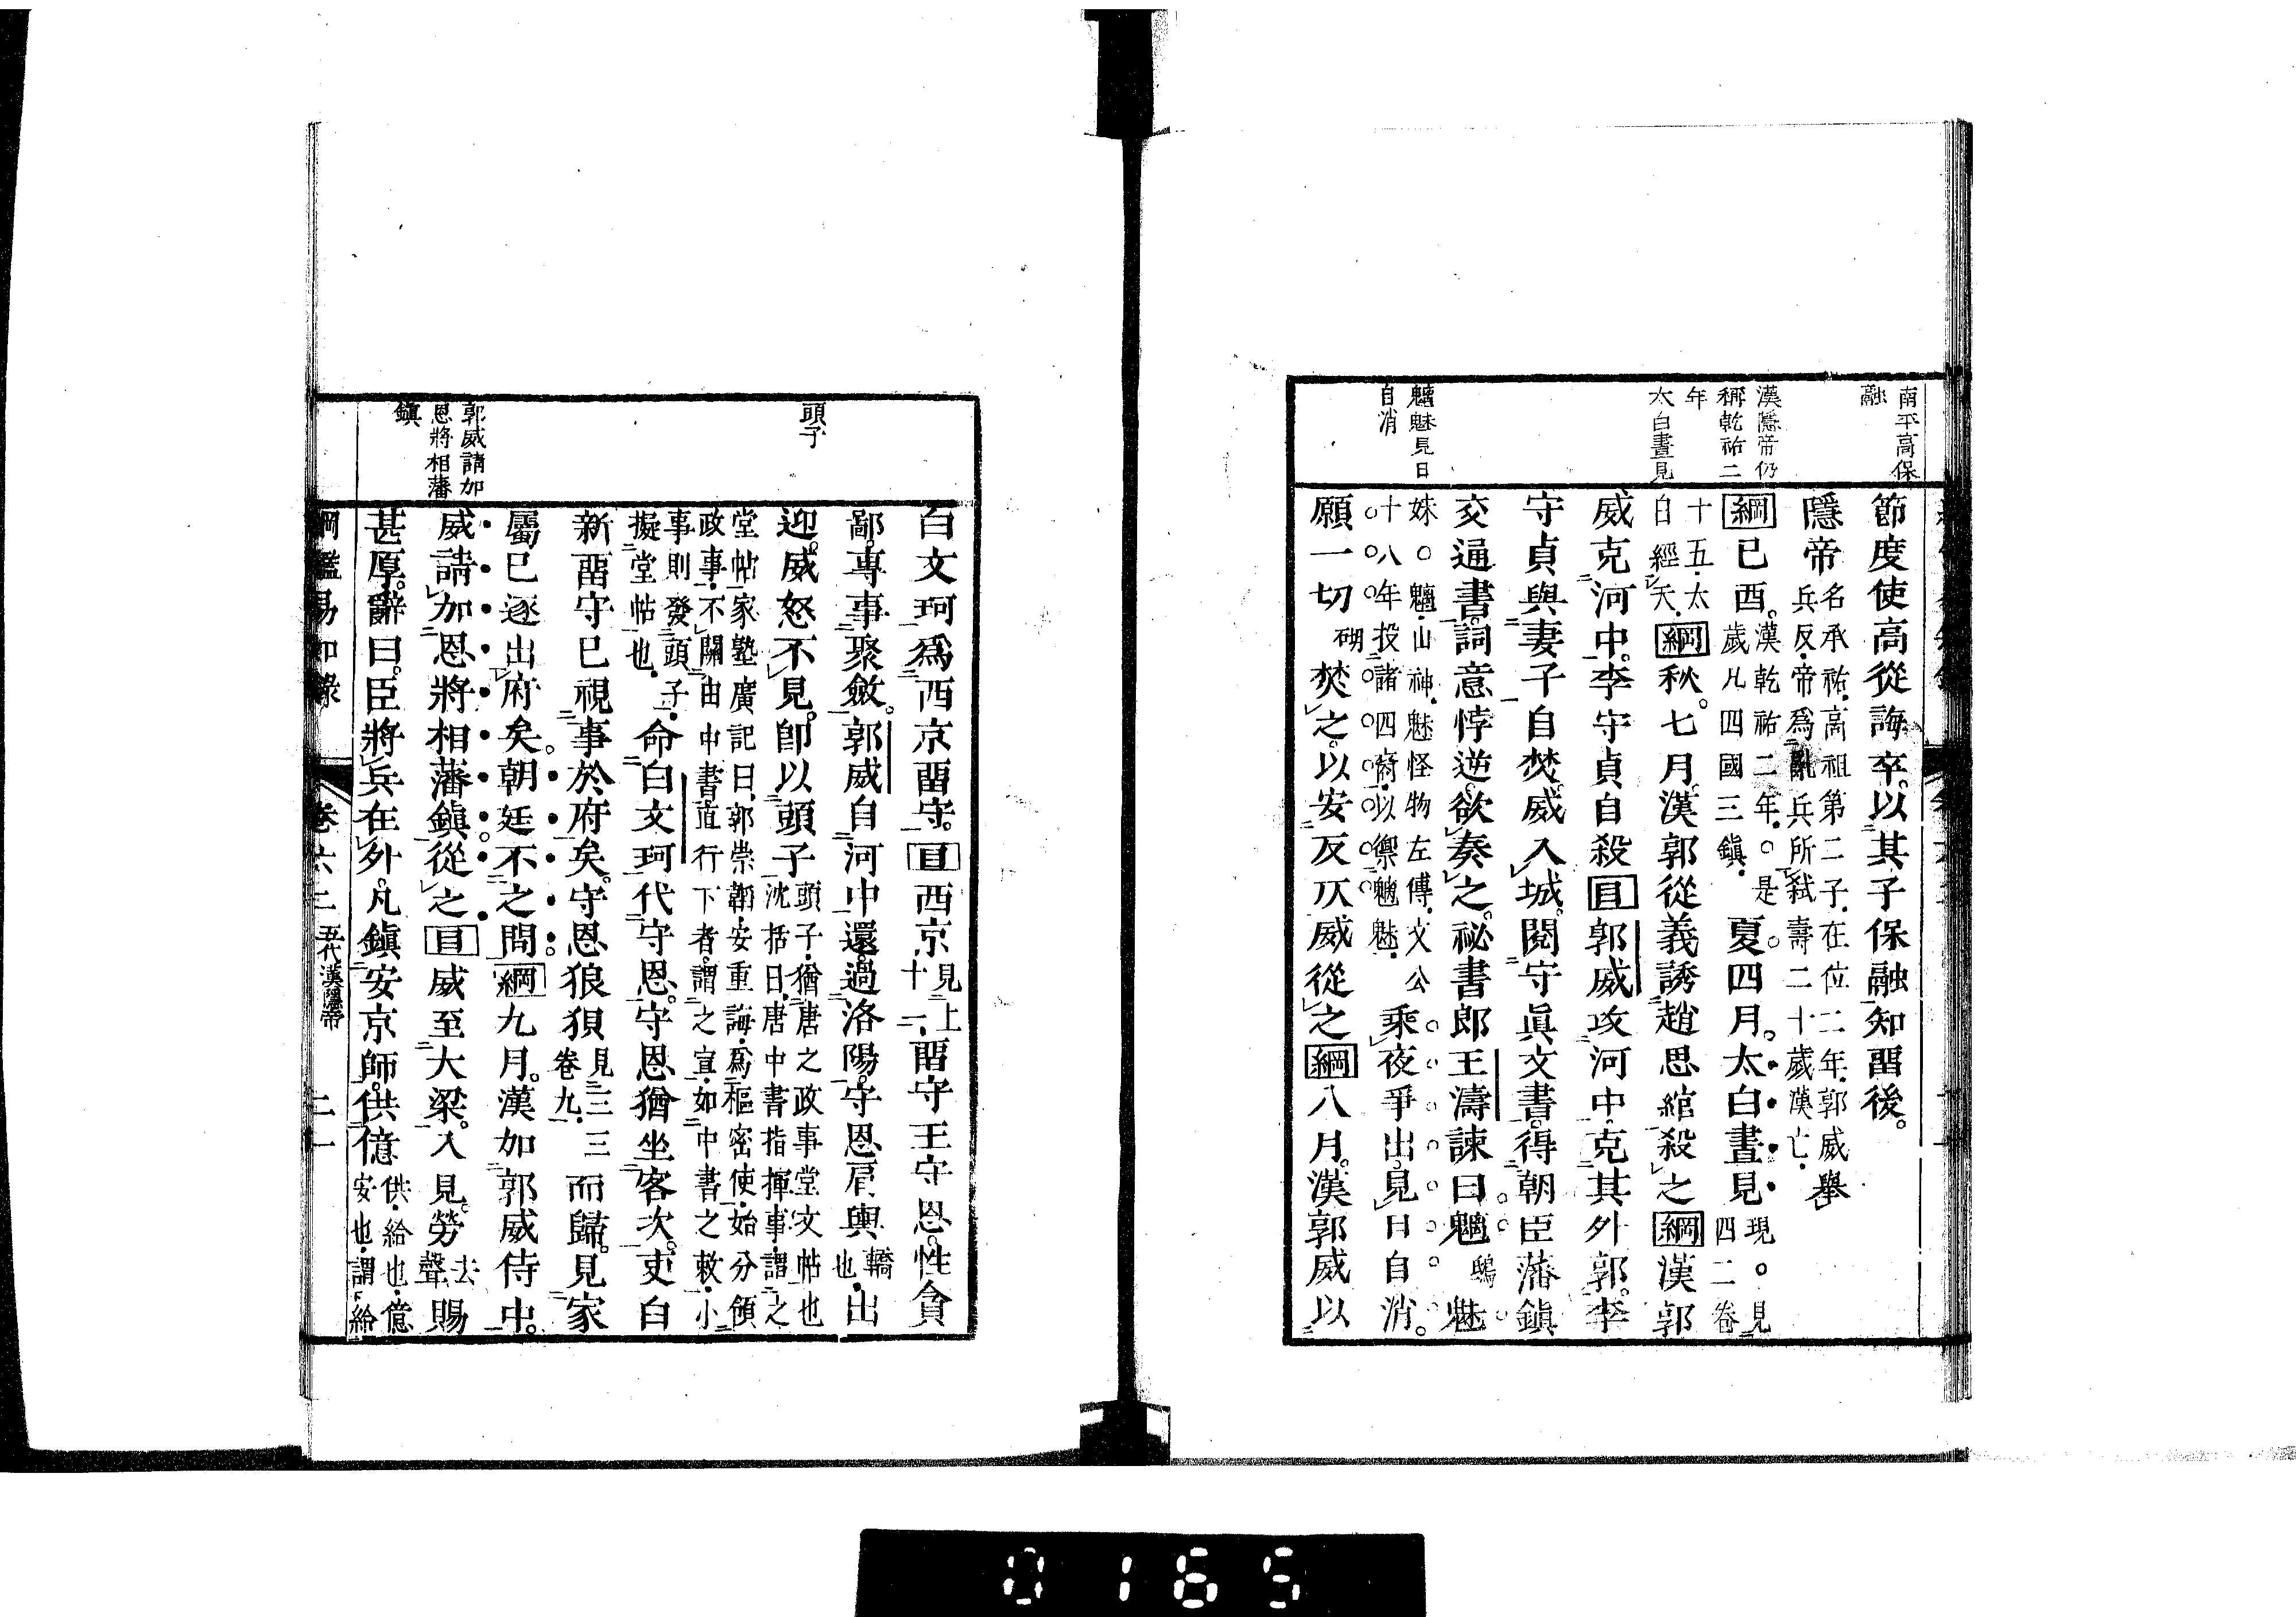 南平高保
融
漢隱帝仍
稱乾祐二
年
太白晝見
魑魅見日
自消
節度使高從誨卒。以其子保融知畱後。
隱帝 名承祐。高祖第二子。在位二年。郭威舉
兵反。帝爲亂兵所弑。壽二十歲。漢亡。
綱 巳酉。 漢乾祐二年。○是
歲凡四國三鎮。 夏四月。太白晝見 現。○見
四二卷
十五。太
白經天。 綱 秋。七月。漢郭從義誘趙思綰殺之 綱 漢郭
威克河中。李守貞自殺 目 郭威攻河中。克其外郭。李
守貞與妻子自焚。威入城。閱守眞文書。得朝臣藩鎮
交通書。詞意悖逆。欲奏之。祕書郎王濤諫曰。魑 鴟 魅
妹。○魑。山神。魅怪物。左傳。文公
十八年。投諸四裔。以禦魑魅。 乘夜爭出。見日自消。
願一切 砌 焚之。以安反仄。威從之 綱 八月。漢郭威以
頭子
郭威請加
恩將相藩
鎮
白文珂爲西京畱守。 目 西京 見上
十一。 畱守王守恩。性貪
鄙。專事聚斂。郭威自河中還。過洛陽。守恩肩輿 轎
也。 出
迎。威怒不見。卽以頭子 頭子。猶唐之政事堂文帖也
沈括曰。唐中書指揮事。謂之
堂帖。家塾廣記曰。郭崇韜。安重誨。爲樞密使。始分領
政事。不關由中書直行下者。謂之宣。如中書之敕。小
事則發頭子。
擬堂帖也。 命白文珂代守恩。守恩猶坐客次。吏白
新畱守巳視事於府矣。守恩狼狽 見三三
卷九。 而歸。見家
屬巳逐出府矣。朝廷不之問 綱 九月。漢加郭威侍中。
威請加恩將相藩鎮。從之 目 威至大梁。入見。勞 去
聲 賜
甚厚。辭曰。臣將兵在外。凡鎮安京師。供億 供。給也。億
安也。謂給
綱鑑易知錄 卷六二 五代漢隱帝 二一
0165